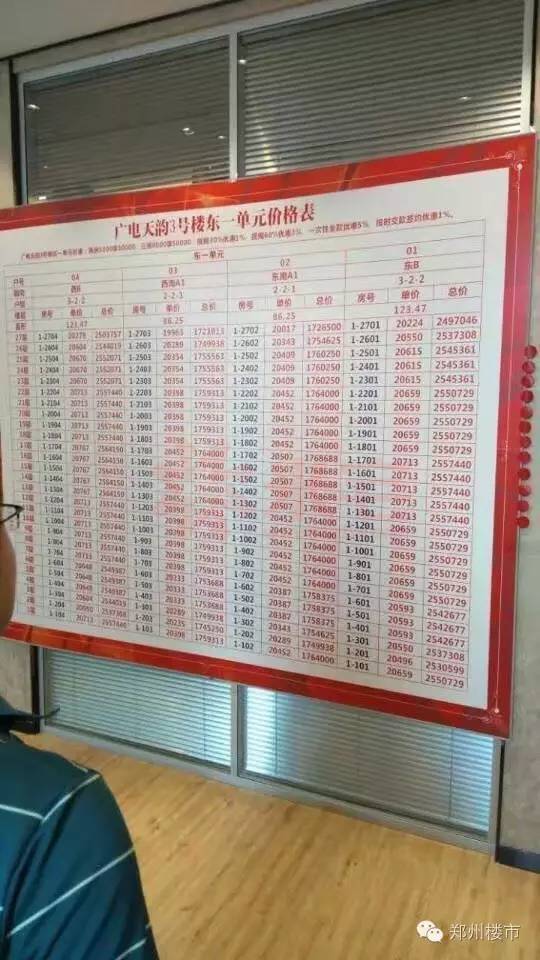 广电天韵3号楼东一单元价格表
东一单元
户号 04 03 02 01
朝向 西B 西南A1 东南A1 东B
户型 3-2-2 2-2-1 2-2-1 3-2-2
楼层 房号 单价 总价 房号 单价 总价 房号 单价 总价 房号 单价 总价
面积 123.47 86.25 86.25 123.47
27层 1-2704 20278 2503757 1-2703 19963 1-2702 20017 1726500 1-2701 20224 2497046
1-2604 1-2603 20289 1749938 1-2602 20343 1754625 1-2601 20550 2537308
1-2504 20670 2552071 1-2503 20354 1755563 1-2502 20409 1760250 1-2501 20615 2545361
1-2404 20670 2552071 1-2403 20354 1755563 1-2402 20409 1760250 1-2401 20615 2545361
1-2304 20670 2552071 1-2303 20354 1755563 1-2302 20409 1760250 1-2301 20615 2545361
1-2204 20713 2557440 1-2203 20398 1759313 1-2202 20452 1764000 1-2201 20659 2550729
1-2104 20713 2557440 1-2103 20398 1759313 1-2102 20452 1764000 1-2101 20659 2550729
1-2004 20713 2557440 1-2003 20398 1759313 1-2002 20452 1764000 1-2001 20659 2550729
1-1904 20713 2557440 1-1903 20398 1759313 1-1902 20452 1764000 1-1901 20659 2550729
1-1804 20713 2557440 1-1803 20398 1759313 1-1802 20452 1764000 1-1801 20659 2550729
1-1704 20767 2564150 1-1703 20452 1764000 1-1702 20507 1768688 1-1701 20713 2557440
1-1604 20767 2564150 1-1603 20452 1764000 1-1602 20507 1768688 1-1601 20713 2557440
1-1504 20767 2564150 1-1503 20452 1764000 1-1502 20507 1768688 1-1501 20713 2557440
1-1404 20767 2564150 1-1403 20452 1764000 1-1402 20507 1768688 1-1401 20713 2557440
1-1304 20767 2564150 1-1303 20452 1764000 1-1302 20507 1768688 1-1301 20713 2557440
1-1204 20713 2557440 1-1203 20398 1759313 1-1202 20452 1764000 1-1201 20659 2550729
1-1104 20713 2557440 1-1103 20398 1759313 1-1102 20452 1764000 1-1101 20659 2550729
1-1004 20713 2557440 1-1003 20398 1759313 1-1002 20452 1764000 1-1001 20659 2550729
1-904 20713 2557440 1-903 20398 1759313 1-902 20452 1764000 1-901 20659 2550729
1-804 20713 2557440 1-803 20398 1759313 1-802 20452 1764000 1-801 20659 2550729
1-704 20713 2557440 1-703 20398 1759313 1-702 20452 1764000 1-701 20659 2550729
1-604 20648 2549387 1-603 20333 1753688 1-602 20387 1758375 1-601 20593 2542677
1-504 20648 2549387 1-503 20333 1753688 1-502 20387 1758375 1-501 20593 2542677
1-404 20648 2549387 1-403 20333 1753688 1-402 20387 1758375 1-401 20593 2542677
1-304 2544019 1-303 20289 1749938 1-302 20343 1754625 1-301 20550 2537308
1-204 20550 2537308 1-203 20235 1745250 1-202 20289 1749938 1-201 20496 2530599
1-104 20713 2557440 1-103 20398 1759313 1-102 20452 1764000 1-101 20659 2550729
郑州楼市